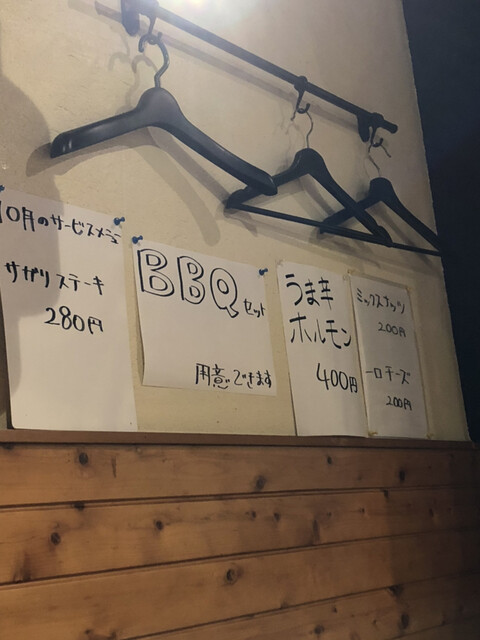 10月のサービスメニュー
サガリステーキ
280円
BBQセット
用意できます
うま辛
ホルモン
400円
ミックスナッツ
200円
一口チーズ
200円